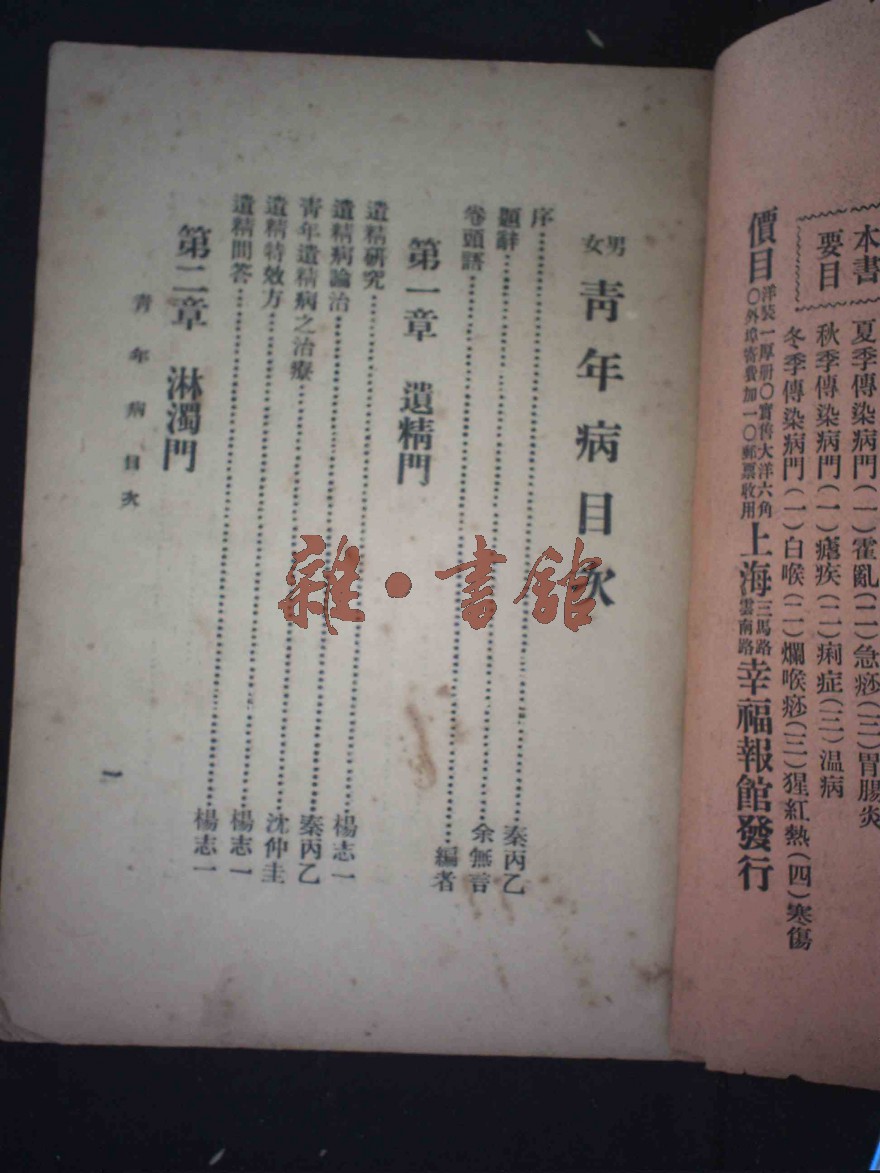 本書
要目
夏季傳染病門(一)霍亂(二)急痧(三)胃腸炎
秋季傳染病門(一)瘧疾(二)痢症(三)温病
冬季傳染病門(一)白喉(二)爛喉痧(三)猩紅熱(四)寒傷
價目
洋裝一厚册〇實售大洋六角
〇外埠寄費加一〇郵票收用
上海
三馬路
雲南路
幸福報館發行
男女
青年病目次
序 秦丙乙
題辭 余無言
卷頭語 編者
第一章 遺精門
遺精研究 楊志一
遺精病論治 秦丙乙
青年遺精病之治療 沈仲圭
遺精特效方 楊志一
遺精問答 楊志一
第二章 淋濁門
青年病目次
一
雜·書館